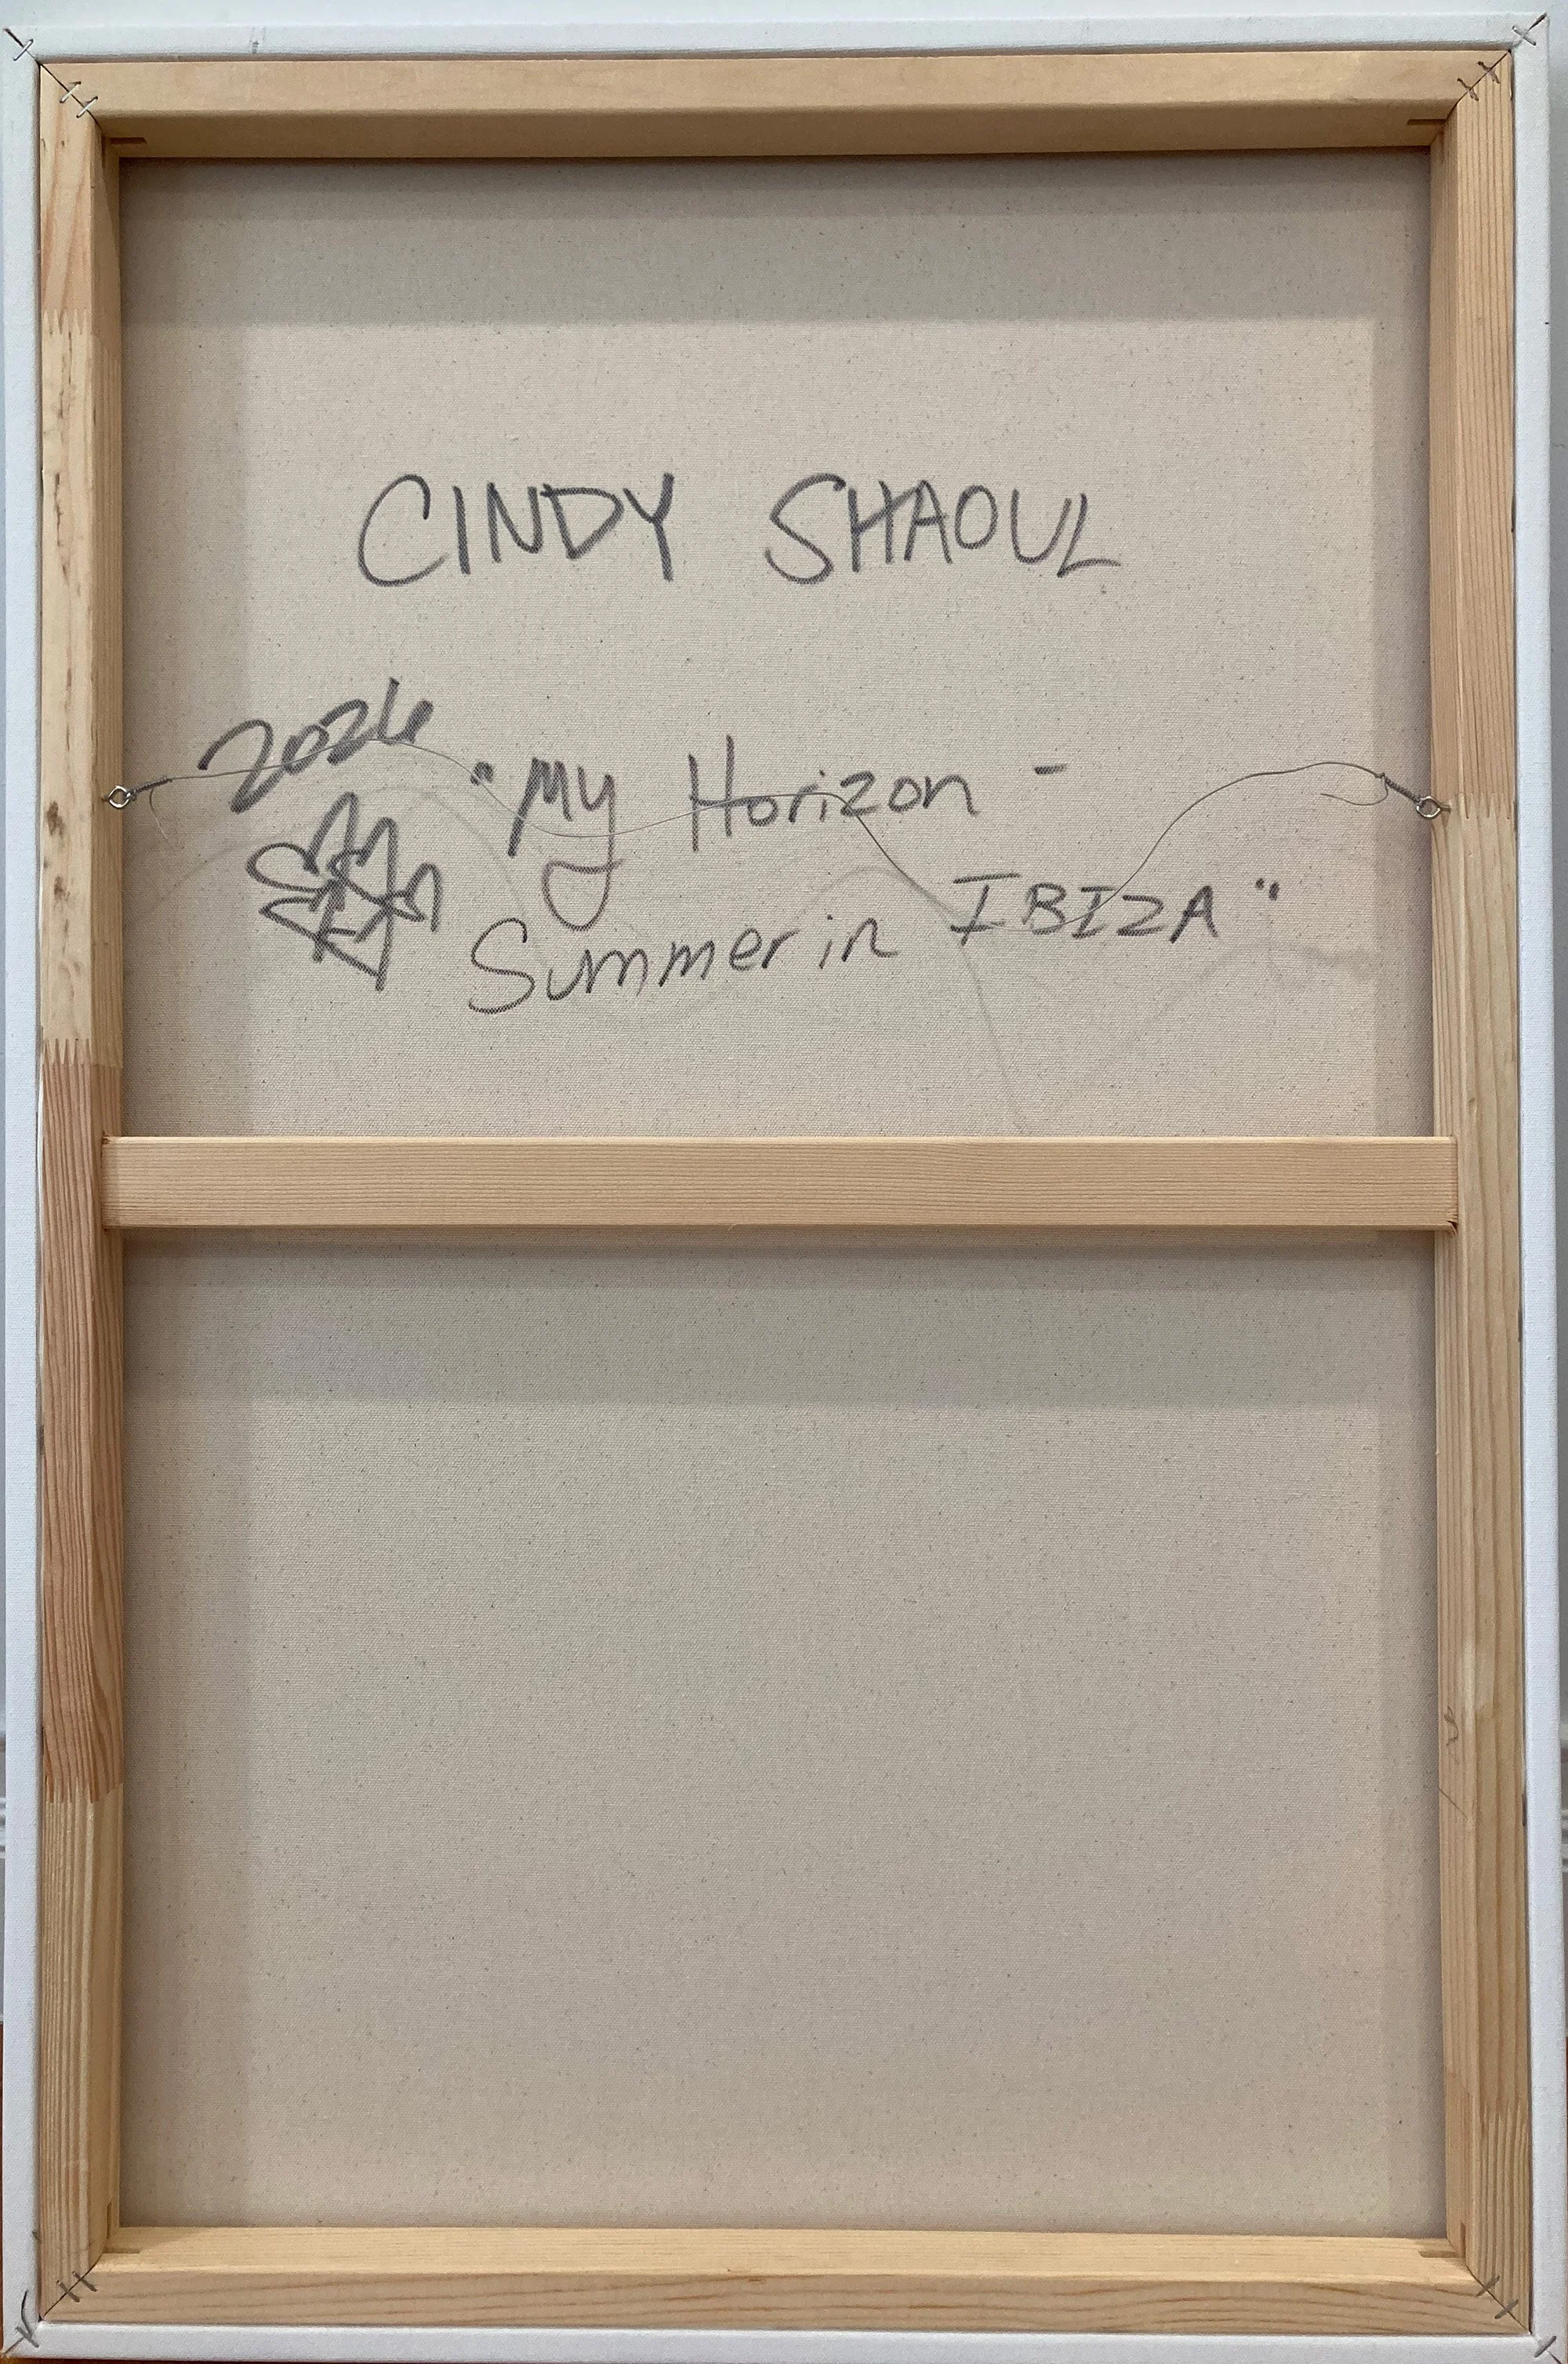 CINDY SHAOUL
2026
"My Horizon -
Summer in IBIZA"